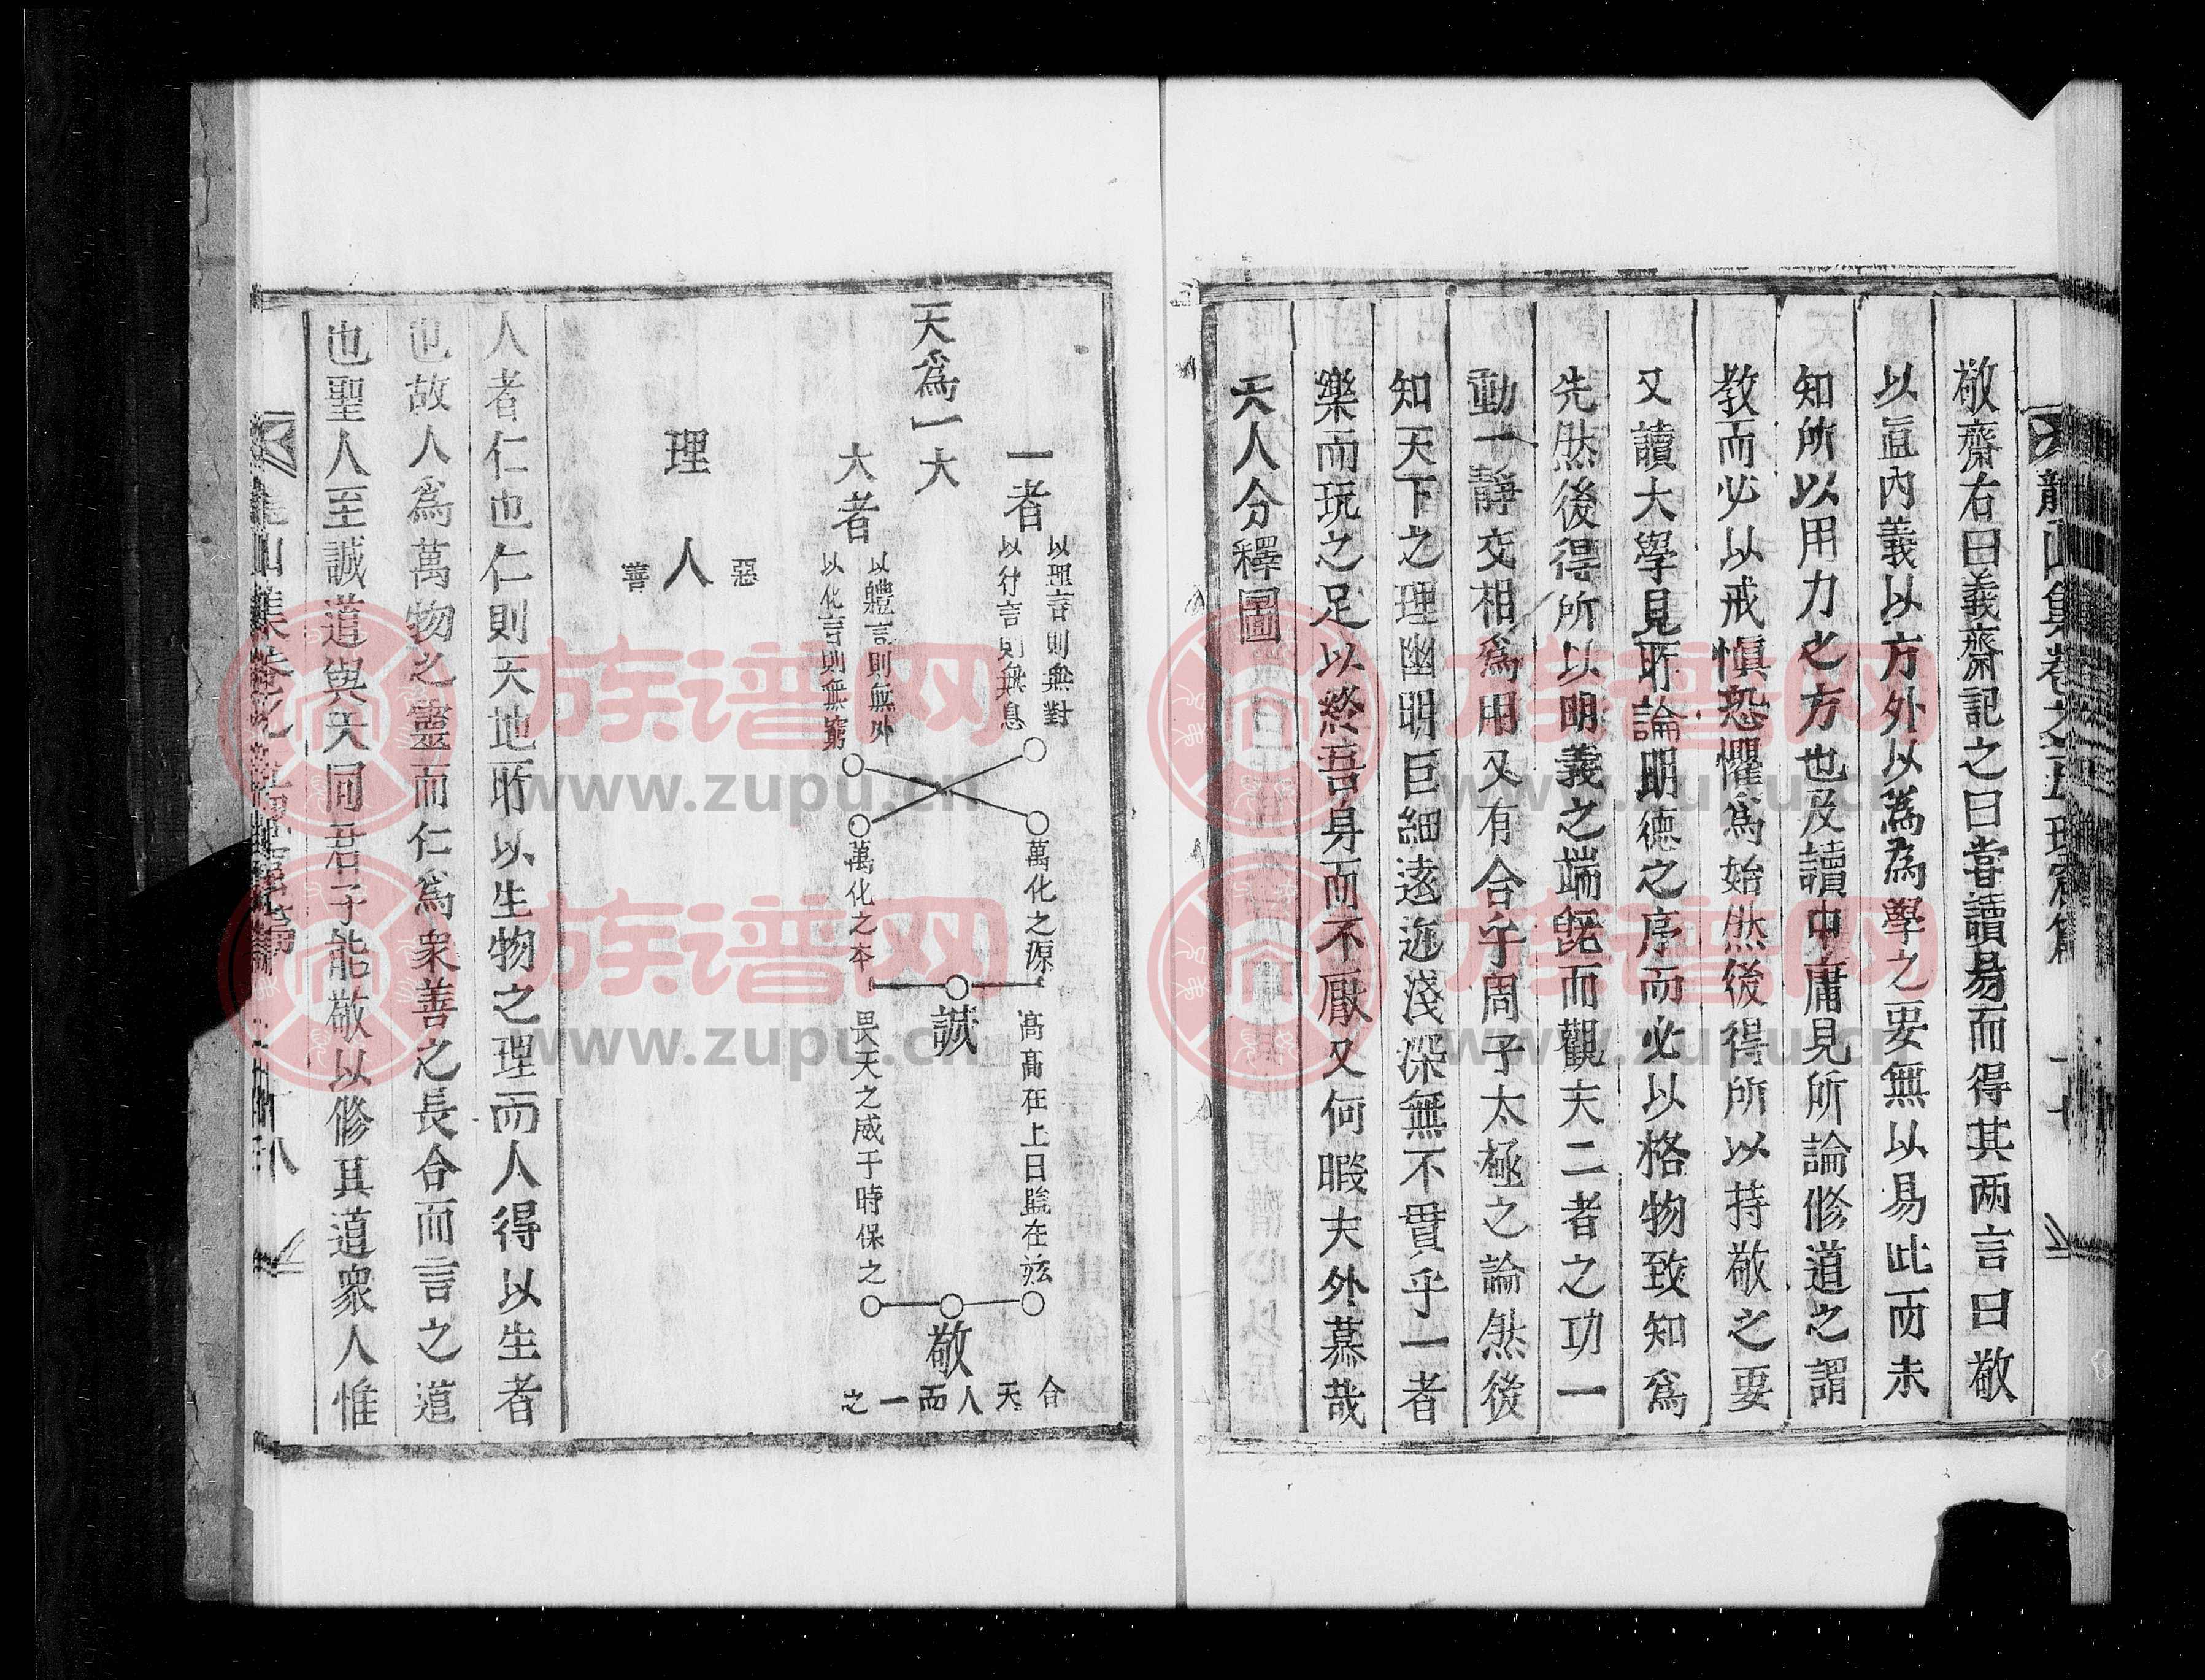 敬齋右曰義齋記之曰嘗讀易而得其两言曰敬
以直內義以方外以為為學之要無以易此而未
知所以用力之方也及讀中庸見所論修道之謂
教而必以戒慎恐懼為始然後得所以持敬之要
又讀大學見所論明德之序而必以格物致知為
先然後得所以明義之端旣而觀夫二者之功一
動一靜交相爲用又有合乎周子太極之論然後
知天下之理幽明巨細遠近淺深無不貫乎一者
樂而玩之足以終吾身而不厭又何暇夫外慕哉
天人分釋圖
一者
以理言則無對
以行言則無息
天爲一大
大者
以體言則無外
以化言則無窮
萬化之源
萬化之本
誠
高高在上日監在茲
畏天之威于時保之
敬
合天人而一之
理
惡
人
善
人者仁也仁則天地所以生物之理而人得以生者
也故人爲萬物之靈而仁爲衆善之長合而言之道
也聖人至誠道與天同君子能敬以修其道衆人惟
族谱网
www.zupu.cn
族谱网
www.zupu.cn
族谱网
www.zupu.cn
族谱网
www.zupu.cn